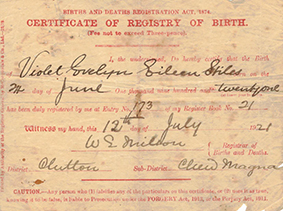 BIRTHS AND DEATHS REGISTRATION ACT, 1874.
CERTIFICATE OF REGISTRY OF BIRTH.
(Fee not to exceed Three-pence)
I, the undersigned, Do hereby certify that the Birth
of Violet Evelyn Eileen Stiles born on the
2nd day of June One thousand nine hundred and twenty one
has been duly registered by me at Entry No. 173 of my Register Book No. 21
Witness my hand, this 12th day of July 1921
W E Milson Registrar of
Births and Deaths.
District Clutton Sub-District Chew Magna
CAUTION.—Any person who (1) falsifies any of the particulars on this certificate, or (2) uses it as true,
knowing it to be false, is liable to Prosecution under the FORGERY Act, 1913, or the Perjury Act, 1911.